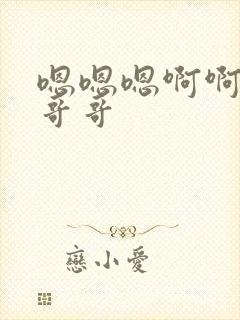 嗯嗯嗯啊啊
哥哥
戀小愛